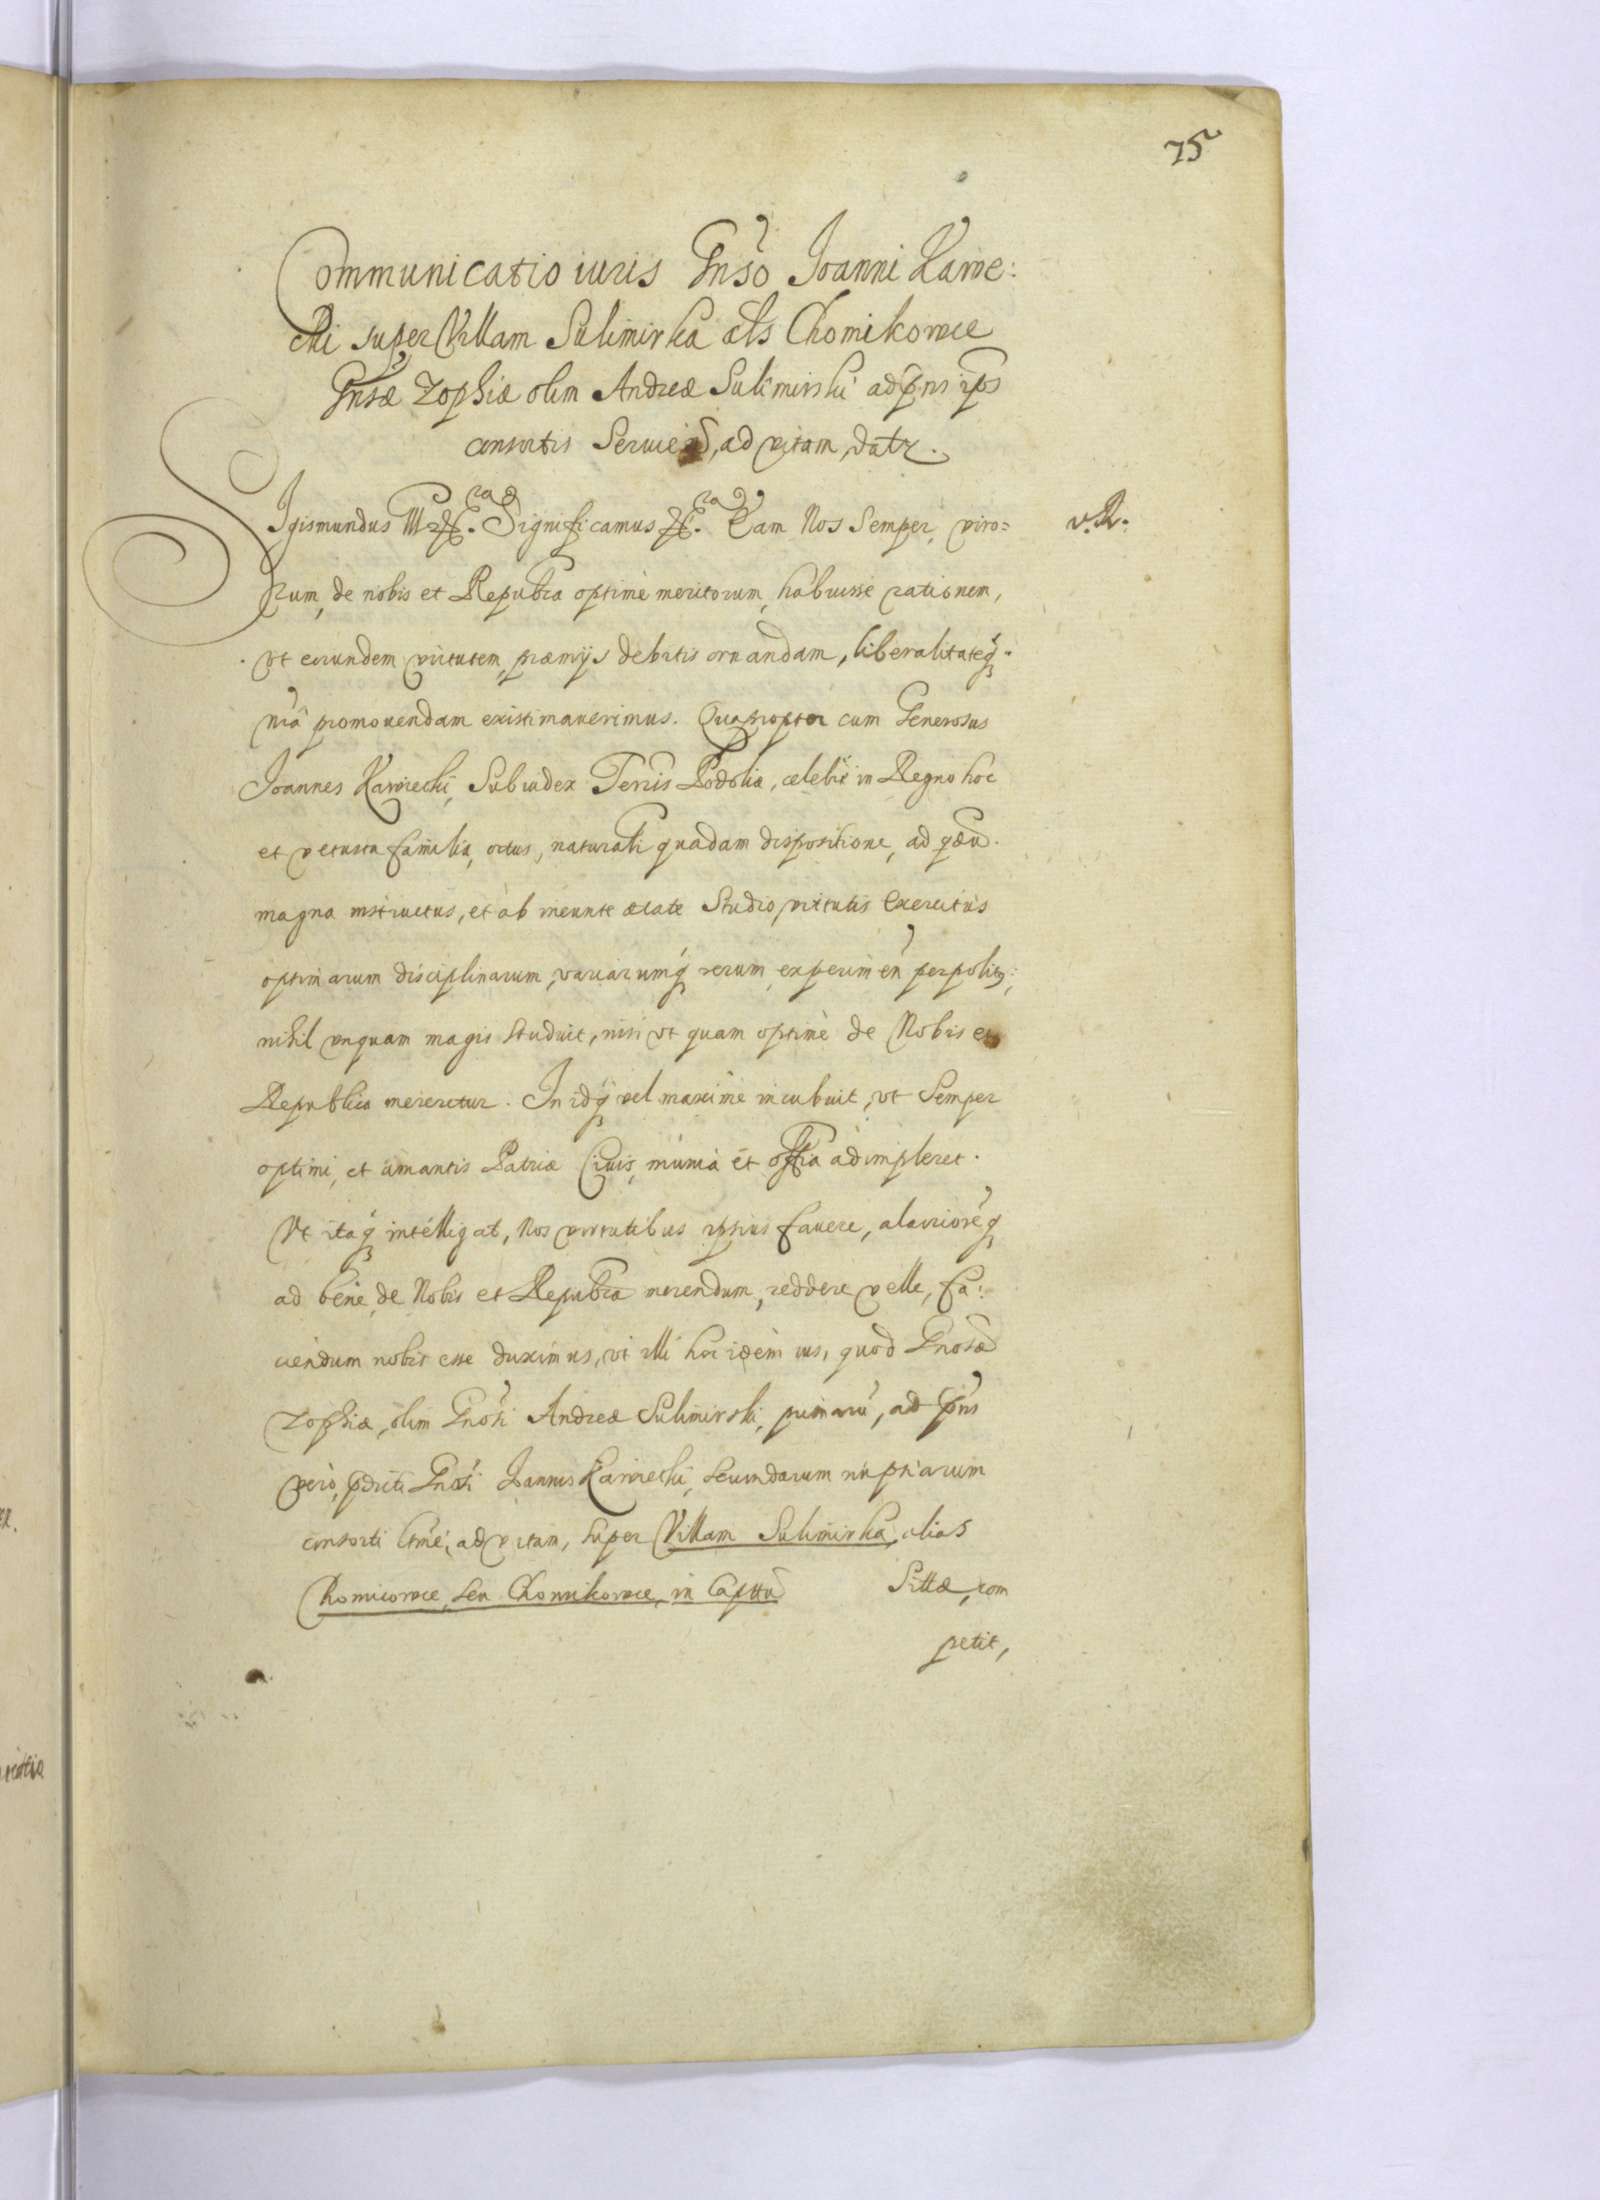 75
Communicatio iuris Gnso Joanni Kawie:
cki super Villam Sulimirka als Chomikowce
Gnsæ Zophiæ olim Andreæ Sulimirski ad pns ips
consortis Seruie, ad vitam, datr.
SIgismundus III Significamus Eam Nos Semper, viro=
v.R.
rum, de nobis et Republca optimè meritorum, habuisse rationem,
vt eorundem virtutem, præmijs debitis ornandam, liberalitateq
nrã promouendam existimauerimus. Quapropter cum Generosus
Joannes Kawiecki, Subiudex Terris Podoliæ, celebri in Regno hoc
et vetusta familia, ortus, naturali quadam dispositione, ad quæu.
magna instructus, et ab ineunte ætate Studio, virtutis exercitus
optimarum disciplinarum, variarumq rerum, experimen perpolitus;
nihil vnquam magis studuit, nisi vt quam optimè de Nobis et
Republica mereretur. In idq vel maximè incubuit, vt Semper
optimi, et amantis Patriæ Ciuis, munia et offia adimpleret.
Vt itaq intelligat, Nos virtutibus ipsius fauere, alacrioreq
ad bene, de Nobis et Republca merendum, reddere velle, fa:
ciendum nobis esse duximus, vt illi hoc idem ius, quod Gnosæ
Zophiæ, olim Gnosi Andreæ Sulimirski, primaru, ad pns
vero, pdicti Gnosi Joannis Kawiecki, secundarum nuptiarum
consorti ltmæ, ad vitam, super Villam Sulimirka, alias
Chomicowce, seu Chomikowce, in Capttu Sittæ, com
petit,